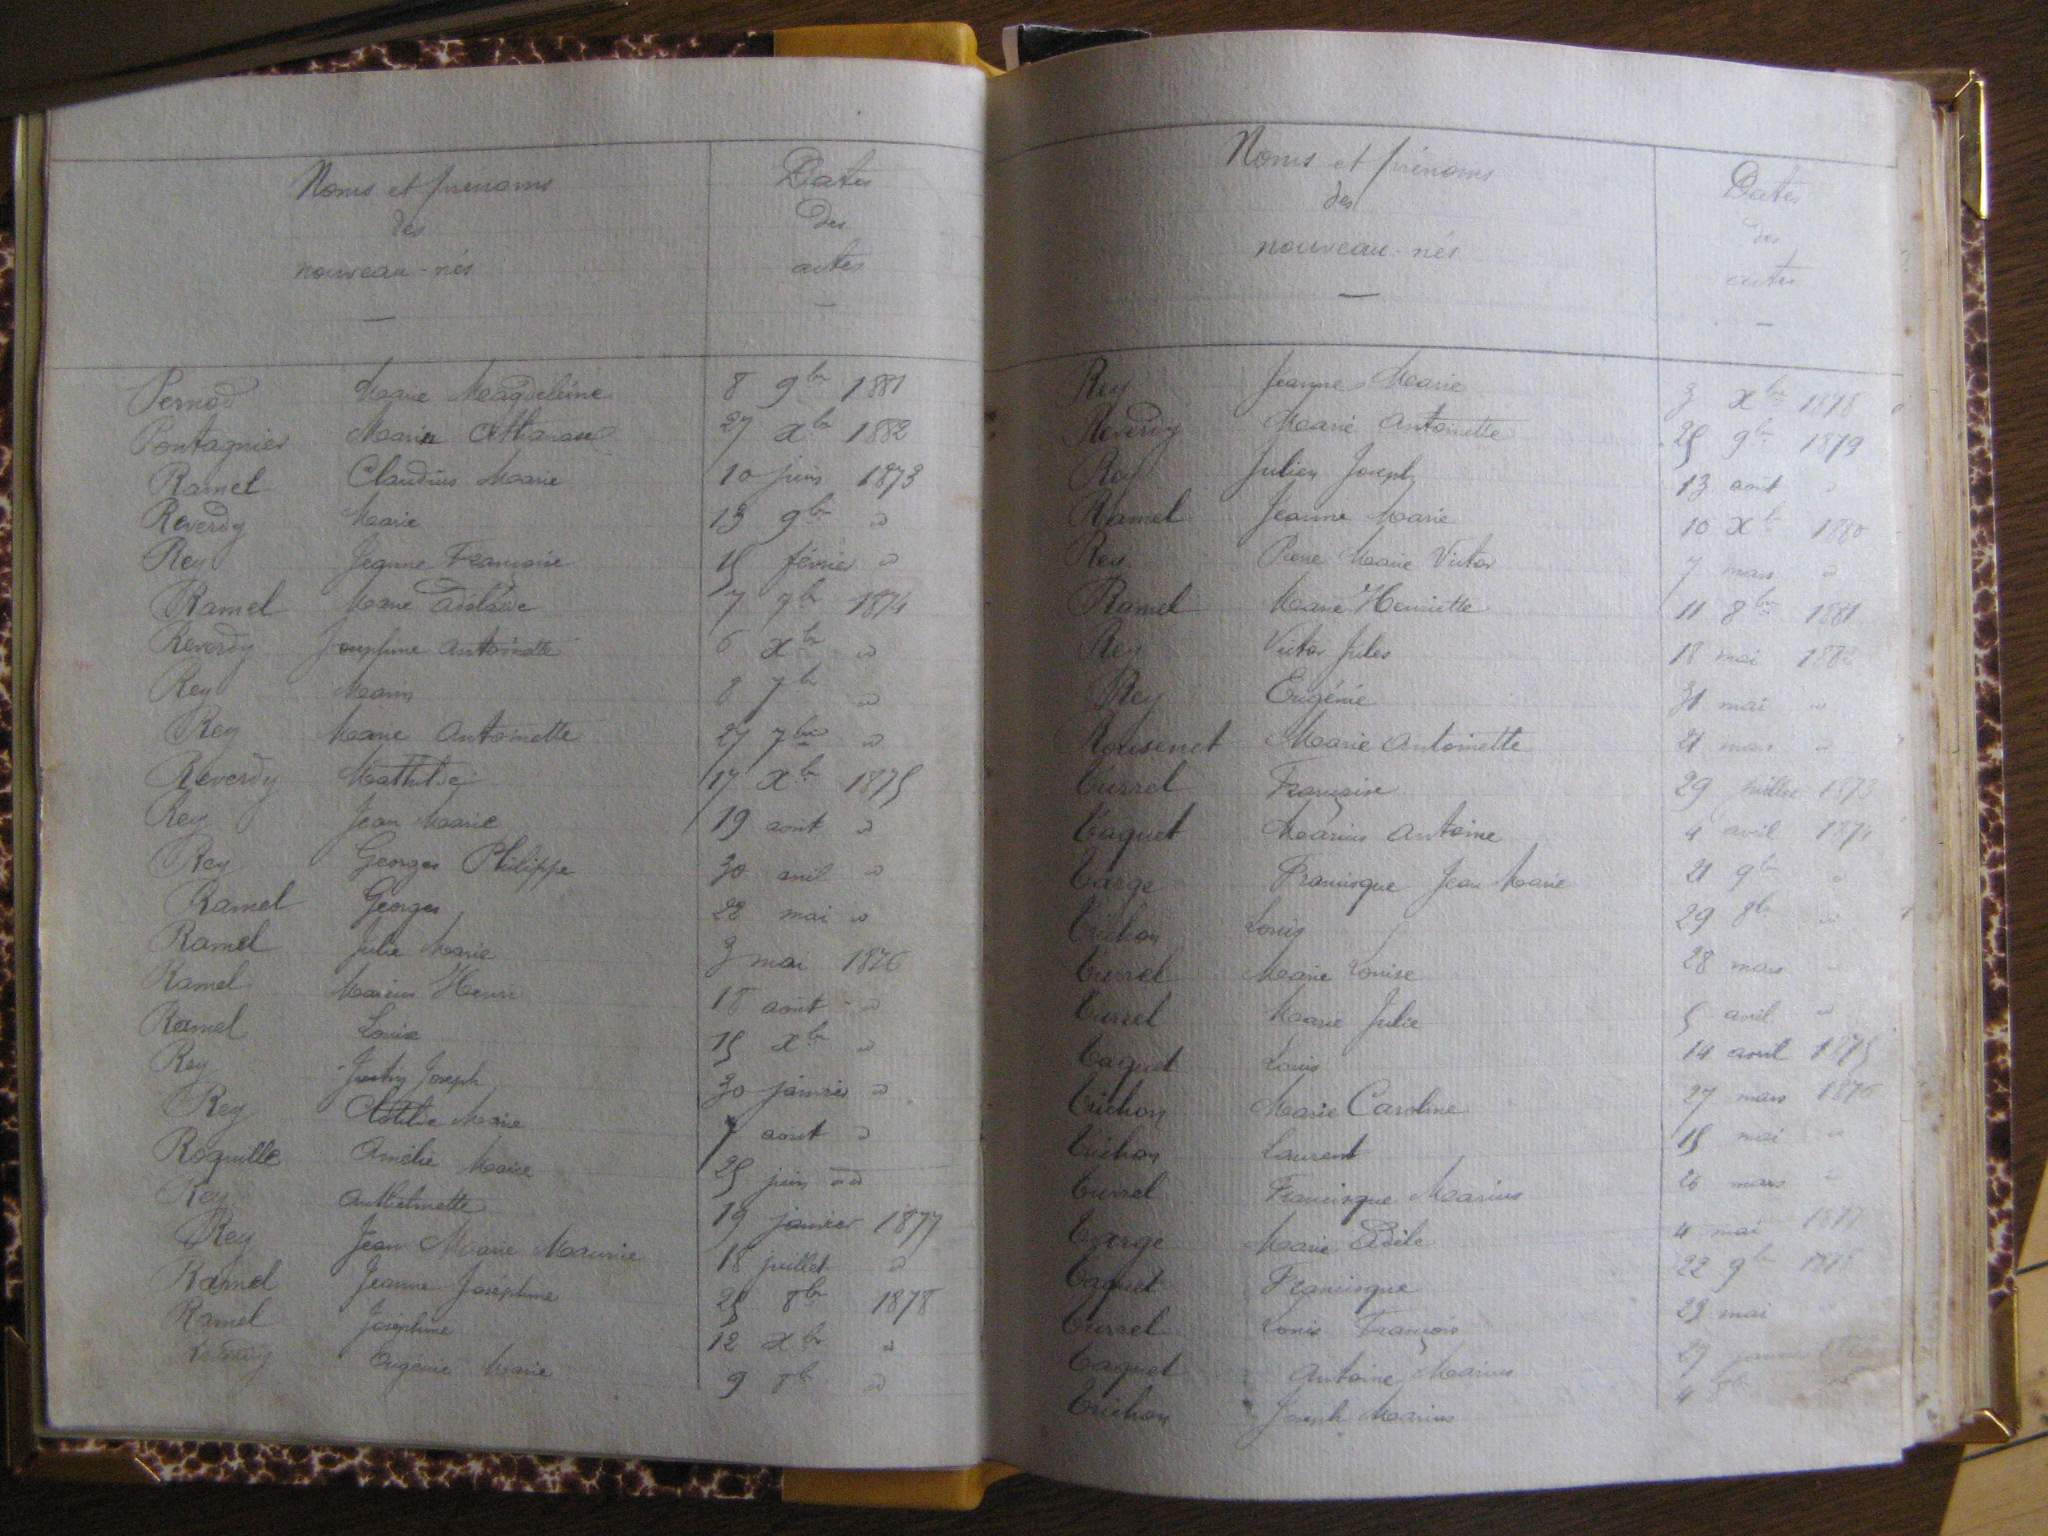 Noms et prénoms
des
nouveau-nés
Dates
des
actes
Pernod Marie Magdeleine 8 9bre 1881
Pontagnier Marie Athanase 27 xbre 1882
Ramel Claudius Marie 10 juin 1873
Reverdy Marie 13 9bre "
Rey Jeanne Françoise 15 février "
Ramel Marie Adélaïde 7 9bre 1874
Reverdy Joséphine Antoinette 6 xbre "
Rey Marius 8 7bre "
Rey Marie Antoinette 27 7bre "
Reverdy Mathilde 17 xbre 1875
Rey Jean Marie 19 août "
Rey Georges Philippe 30 avril "
Ramel Georges 28 mai "
Ramel Julie Marie 3 mai 1876
Ramel Marius Henri 18 août "
Ramel Louise 15 xbre "
Rey Joseph 30 janvier "
Rey Clotilde Marie 7 août "
Roquille Amélie Marie 25 juin "
Rey Anthelmette 19 janvier 1877
Rey Jean Marie Maurice 18 juillet "
Ramel Jeanne Joséphine 25 8bre 1878
Ramel Joséphine 12 xbre "
Reverdy Eugénie Marie 9 8bre "
Noms et prénoms
des
nouveau-nés
Dates
des
actes
Rey Jeanne Marie 3 xbre 1878
Reverdy Marie Antoinette 25 9bre 1879
Rey Julien Joseph 13 août "
Ramel Jeanne Marie 10 xbre 1880
Rey Pierre Marie Victor 7 mars "
Ramel Marie Henriette 11 8bre 1881
Rey Victor Jules 18 mai 1882
Rey Eugénie 31 mai "
Rousenet Marie Antoinette 21 mars "
Turrel Françoise 29 juillet 1873
Taquet Marius Antoine 4 avril 1874
Targe Francisque Jean Marie 21 9bre "
Trichon Louis 29 8bre "
Turrel Marie Louise 28 mars "
Turrel Marie Julie 5 avril "
Taquet Louis 14 avril 1875
Trichon Marie Caroline 27 mars 1876
Trichon Laurent 15 mai "
Turrel Francisque Marius 26 mars "
Targe Marie Adèle 4 mai 1877
Taquet Francisque 22 9bre 1878
Turrel Louis François 23 mai
Taquet Antoine Marius 29
Trichon Joseph Marius 4